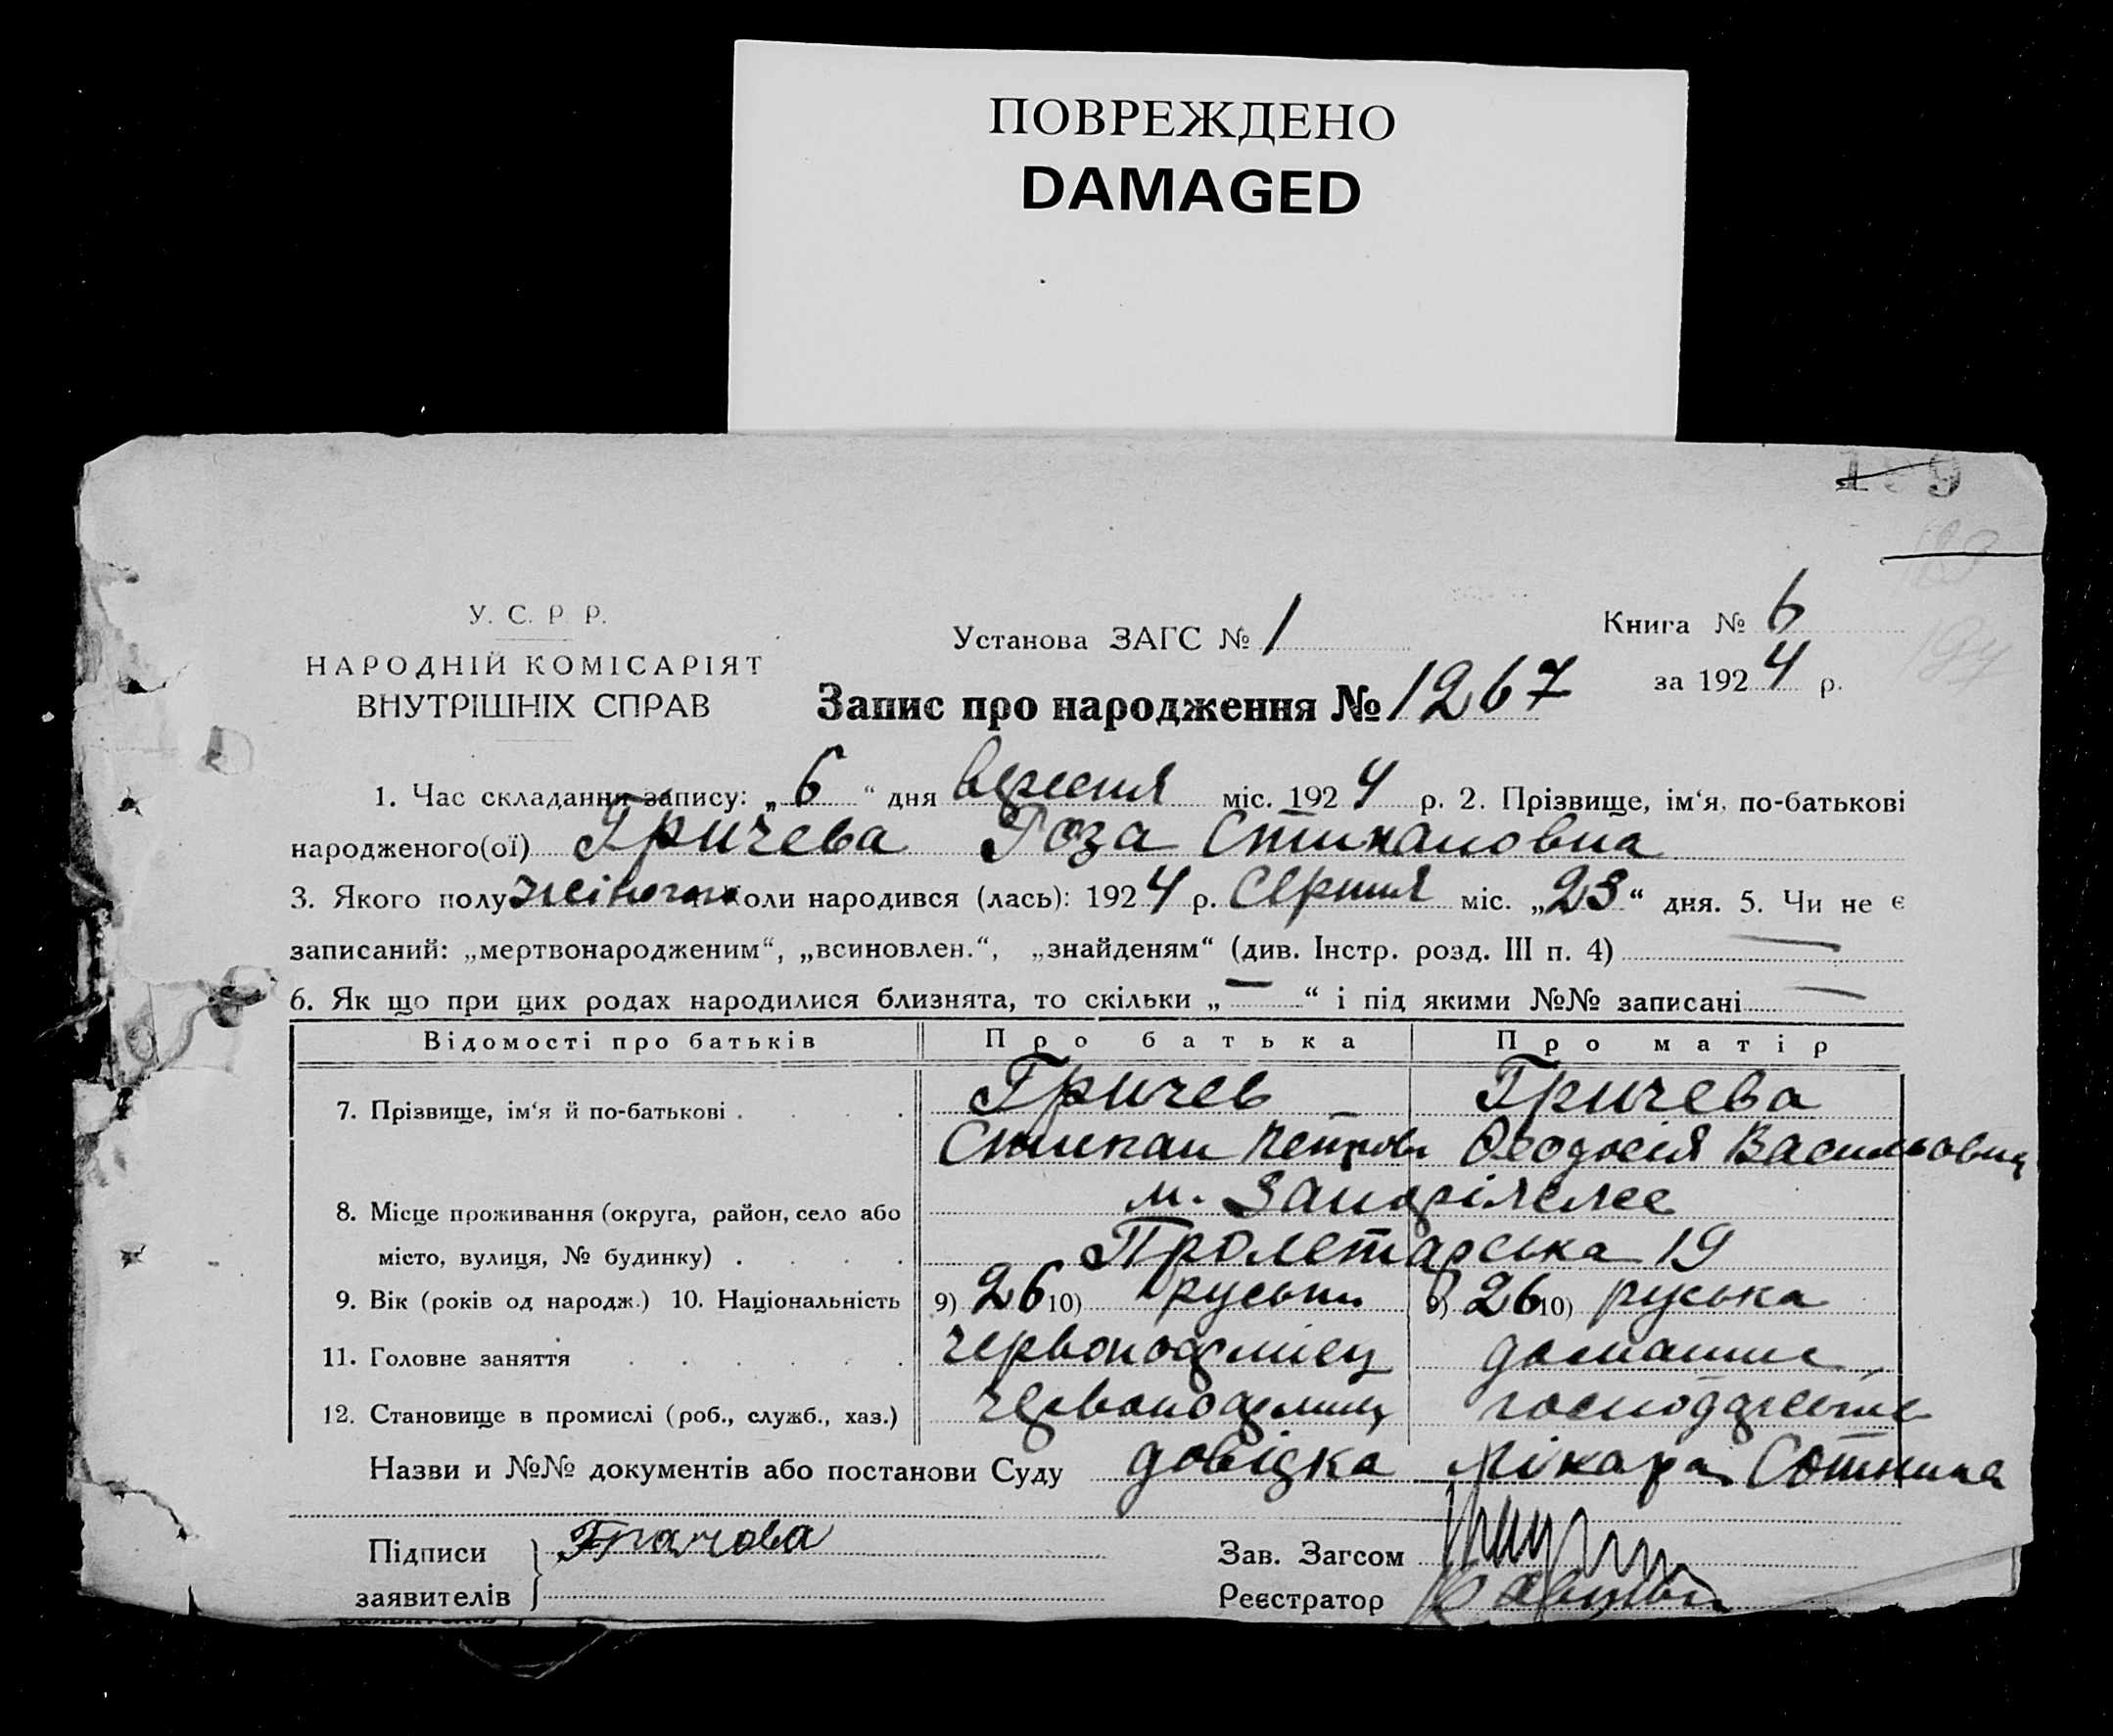 ПОВРЕЖДЕНО
DAMAGED
У. С. Р. Р.
НАРОДНІЙ КОМІСАРІЯТ
ВНУТРІШНІХ СПРАВ
Установа ЗАГС № 1
Книга № 6
за 1924 р.
Запис про народження № 1267
1. Час складання запису: „6“ дня вересня міс. 1924 р. 2. Прізвище, ім‘я, по-батькові
народженого(ої) Гричева Роза Стипановна
3. Якого полу жіночого коли народився (лась): 1924 р. Серпня міс. „23“ дня. 5. Чи не є
записаний: „мертвонародженим“, „всиновлен.“, „знайденям“ (див. Інстр. розд. III п. 4) —
6. Як що при цих родах народилися близнята, то скільки „—“ і під якими №№ записані —
Відомості про батьків Про батька Про матір
7. Прізвище, ім‘я й по-батькові Гричев Гричева
Стипан Петров Феодосія Васильовна
8. Місце проживання (округа, район, село або м. Запоріжже
місто, вулиця, № будинку) Пролетарська 19
9. Вік (років од народж.) 10. Національність 9) 26 10) руський 9) 26 10) руська
11. Головне заняття червоноармієц домашнє
12. Становище в промислі (роб., служб., хаз.) червоноармієц господарство
Назви и №№ документів або постанови Суду довідка лікаря Сотника
Підписи Грачова
заявителів
Зав. Загсом
Реєстратор